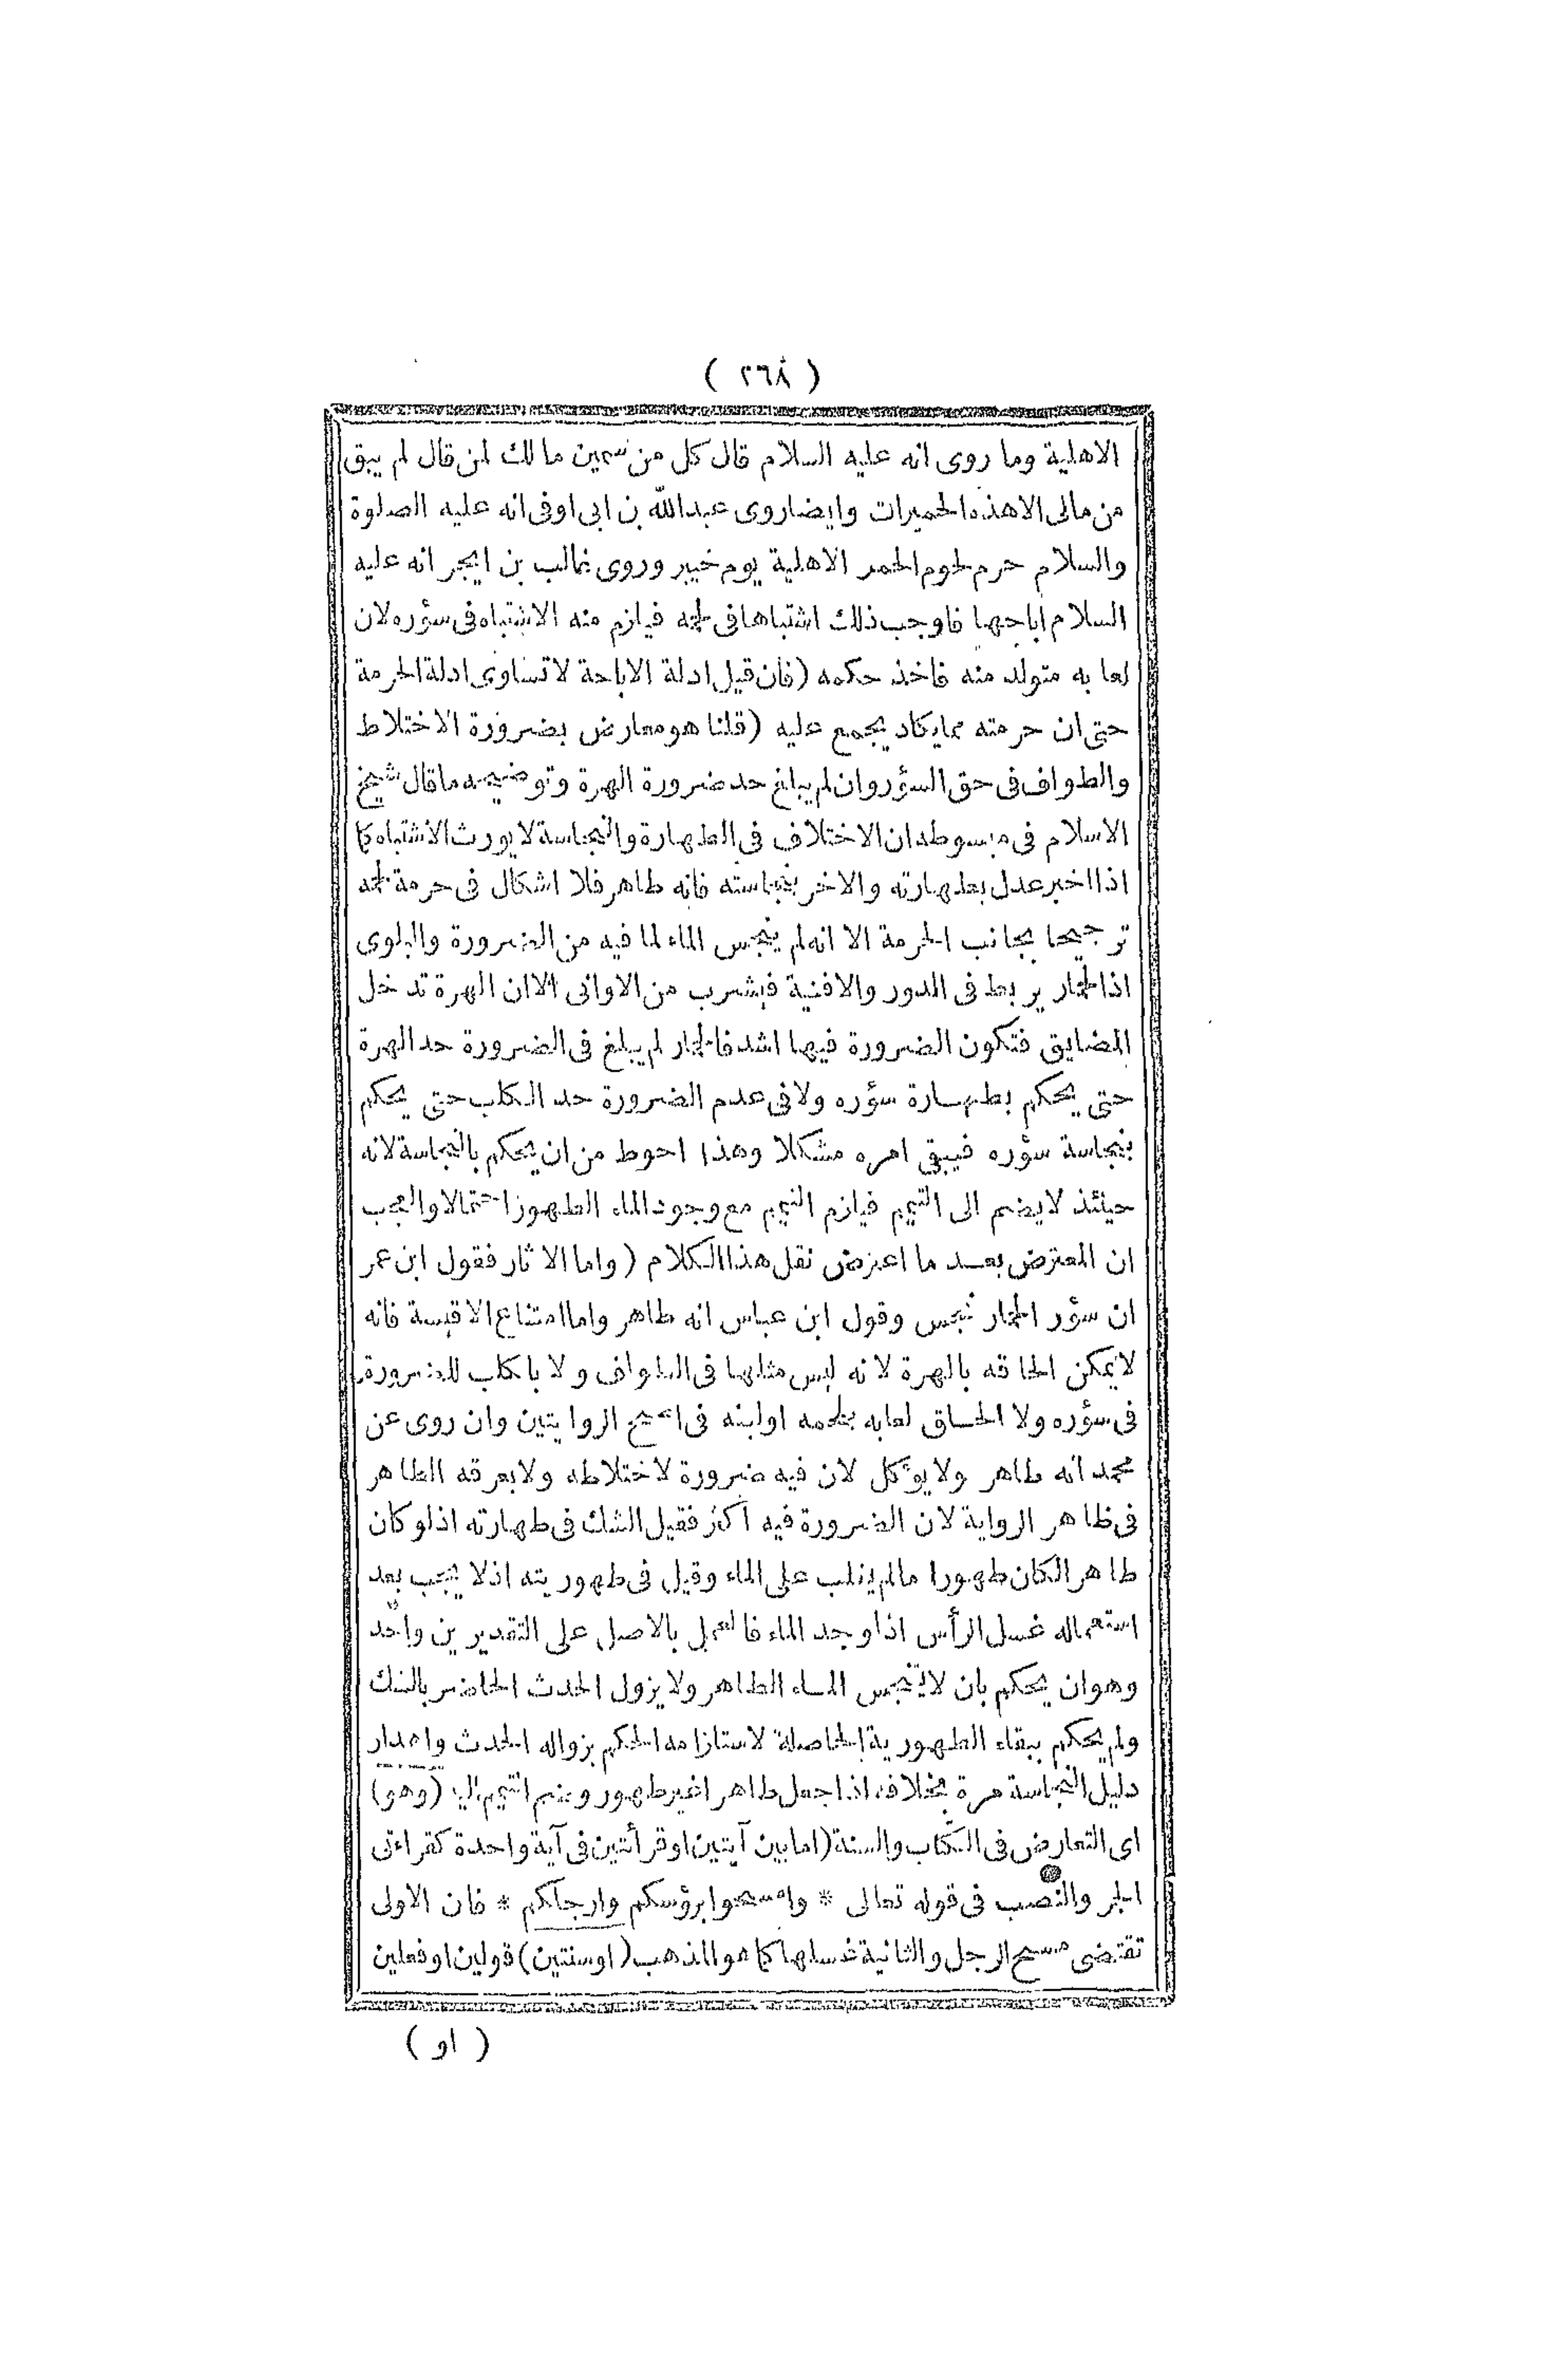 ( ٢٦٨ )
الاهلية وما روى انه عليه السلام قال كل من سمين مالك لمن قال لم يبق
من مالى الا هذه الحميرات وايضا روى عبد الله بن ابى اوفى انه عليه الصلوة
والسلام حرم لحوم الحمر الاهلية يوم خيبر وروى غالب بن ابجر انه عليه
السلام اباحها فاوجب ذلك اشتباها فى لحمه فيلزم منه الاشتباه فى سؤره لان
لعابه متولد منه فاخذ حكمه (فان قيل ادلة الاباحة لا تساوى ادلة الحرمة
حتى ان حرمته مما يكاد يجمع عليه (قلنا هو معارض بضرورة الاختلاط
والطواف فى حق السؤر وان لم يبلغ حد ضرورة الهرة وتوضيحه ما قال شيخ
الاسلام فى مبسوطه ان الاختلاف فى الطهارة والنجاسة لا يورث الاشتباه كما
اذا اخبر عدل بطهارته والاخر بنجاسته فانه طاهر فلا اشكال فى حرمة لحمه
ترجيحا بجانب الحرمة الا انه لم ينجس الماء لما فيه من الضرورة والبلوى
اذ الحمار يربط فى الدور والافنية فيشرب من الاوانى الا ان الهرة تدخل
المضايق فتكون الضرورة فيها اشد فالحمار لم يبلغ فى الضرورة حد الهرة
حتى يحكم بطهارة سؤره ولا فى عدم الضرورة حد الكلب حتى يحكم
بنجاسة سؤره فيبقى امره مشكلا وهذا احوط من ان يحكم بالنجاسة لانه
حينئذ لا يضم الى التيمم فيلزم التيمم مع وجود الماء الطهور احتمالا والعجب
ان المعترض بعد ما اعترض نقل هذا الكلام (واما الاثار فقول ابن عمر
ان سؤر الحمار نجس وقول ابن عباس انه طاهر واما امتناع الاقيسة فانه
لا يمكن الحاقه بالهرة لانه ليس مثلها فى الطواف ولا بالكلب للضرورة
فى سؤره ولا الحاق لعابه بلحمه او لبنه فى اصح الروايتين وان روى عن
محمد انه طاهر ولا يؤكل لان فيه ضرورة لاختلاطه ولا بعرقه الطاهر
فى ظاهر الرواية لان الضرورة فيه اكثر فقيل الشك فى طهارته اذ لو كان
طاهرا لكان طهورا مالم يغلب على الماء وقيل فى طهوريته اذ لا يجب بعد
استعماله غسل الرأس اذا وجد الماء فالعمل بالاصل على التقديرين واحد
وهو ان يحكم بان لا يتنجس الماء الطاهر ولا يزول الحدث الحاضر بالشك
ولم يحكم ببقاء الطهورية الحاصلة لاستلزامه الحكم بزواله الحدث واهدار
دليل النجاسة مرة بخلافه اذا جعل طاهرا غير طهور وضم التيمم اليه (وهو)
اى التعارض فى الكتاب والسنة (اما بين آيتين او قرأتين فى آية واحدة كقراءتى
الجر والنصب فى قوله تعالى * وامسحوا برؤسكم وارجلكم * فان الاولى
تقتضى مسح الرجل والثانية غسلها كما هو المذهب (او سنتين) قولين او فعلين
( او )